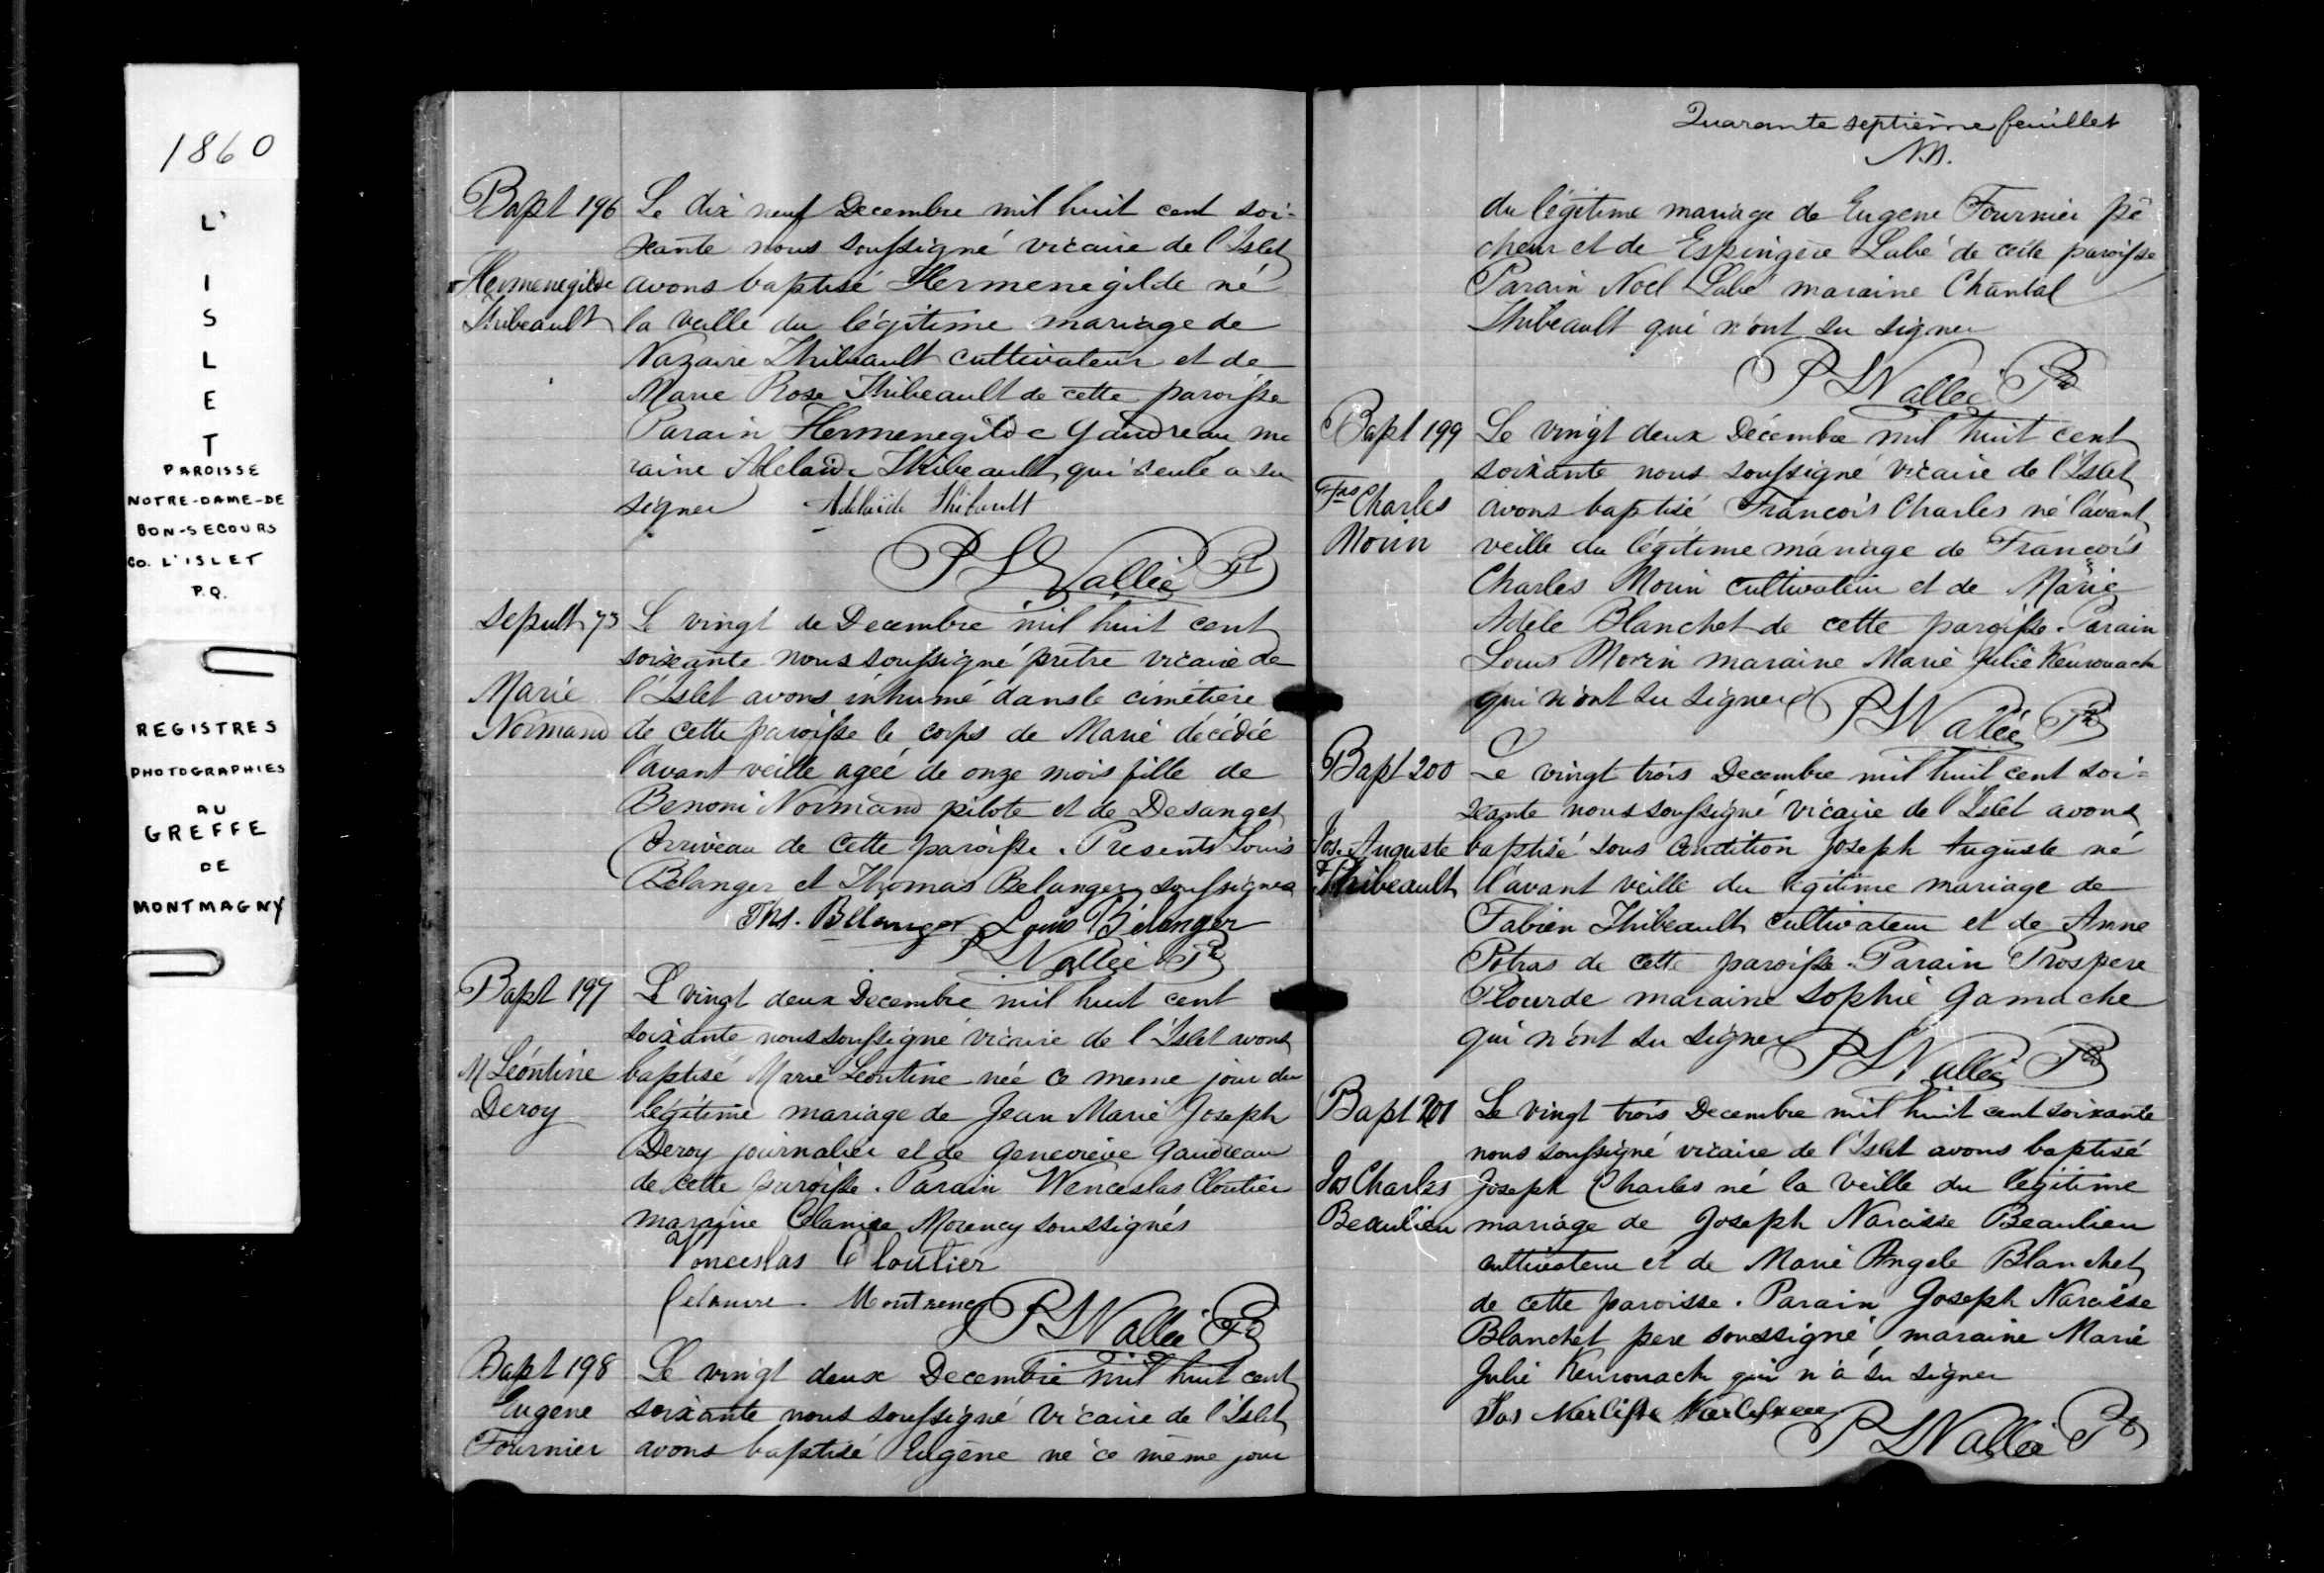 1860
L'
I
S
L
E
T
PAROISSE
NOTRE-DAME-DE
BON-SECOURS
CO. L'ISLET
P.Q.
REGISTRES
PHOTOGRAPHIES
AU
GREFFE
DE
MONTMAGNY
Bapt 196
Hermenegilde
Thibeault
Le dix neuf Decembre mil huit cent soi-
xante nous soussigné vicaire de l'Islet
avons baptisé Hermenegilde né
la veille du légitime mariage de
Nazaire Thibeault cultivateur et de
Marie Rose Thibeault de cette paroisse
Parain Hermenegilde Gaudreau ma
raine Adelaide Thibeault qui seule a su
signer Adelaide Thibault
P L Vallée Ptre
Sepult 73
Marie
Normand
Le vingt de Decembre mil huit cent
soixante nous soussigné prêtre vicaire de
l'Islet avons inhumé dans le cimétière
de cette paroisse le corps de Marie décédée
l'avant veille agée de onze mois fille de
Benoni Normand pilote et de Desanges
Corriveau de cette paroisse. Presents Louis
Bélanger et Thomas Belanger soussignés
Ths. Bélanger Louis Bélanger
P L Vallée Ptre
Bapt 197
M Léontine
Deroy
Le vingt deux Decembre mil huit cent
soixante nous soussigné vicaire de l'Islet avons
baptisé Marie Leontine née ce meme jour du
légitime mariage de Jean Marie Joseph
Deroy journalier et de Genevieve Gaudreau
de cette paroisse. Parain Wenceslas Cloutier
maraine Celanire Morency soussignés
Vonceslas Cloutier
Celanire Montrency
P L Vallée Ptre
Bapt 198
Eugene
Fournier
Le vingt deux Decembre mil huit cent
soixante nous soussigné vicaire de l'Islet
avons baptisé Eugène né ce même jour
Quarante septième feuillet
du légitime mariage de Eugene Fournier pê
cheur et de Espingère Labé de cette paroisse
Parain Noel Labé maraine Chantal
Thibeault qui n'ont su signer
P L Vallée Ptre
Bapt 199
Frs Charles
Morin
Le vingt deux Décembre mil huit cent
soixante nous soussigné vicaire de l'Islet
avons baptisé François Charles né l'avant
veille du légitime mariage de François
Charles Morin cultivateur et de Marie
Adèle Blanchet de cette paroisse. Parain
Louis Morin maraine Marie Julie Keurouack
qui n'ont su signer P L Vallée Ptre
Bapt 200
Jos. Auguste
Thibeault
Le vingt trois Decembre mil huit cent soi-
xante nous soussigné vicaire de l'Islet avons
baptisé sous condition Joseph Auguste né
l'avant veille du legitime mariage de
Fabien Thibeault cultivateur et de Anne
Potras de cette paroisse. Parain Prospere
Plourde maraine Sophie Gamache
qui n'ont su signer
P L Vallée Ptre
Bapt 201
Jos Charles
Beaulieu
Le vingt trois Decembre mil huit cent soixante
nous soussigné vicaire de l'Islet avons baptisé
Joseph Charles né la veille du légitime
mariage de Joseph Narcisse Beaulieu
cultivateur et de Marie Angele Blanchet
de cette paroisse. Parain Joseph Narcisse
Blanchet pere soussigné, maraine Marie
Julie Keurouack qui n'a su signer
P L Vallée Ptre